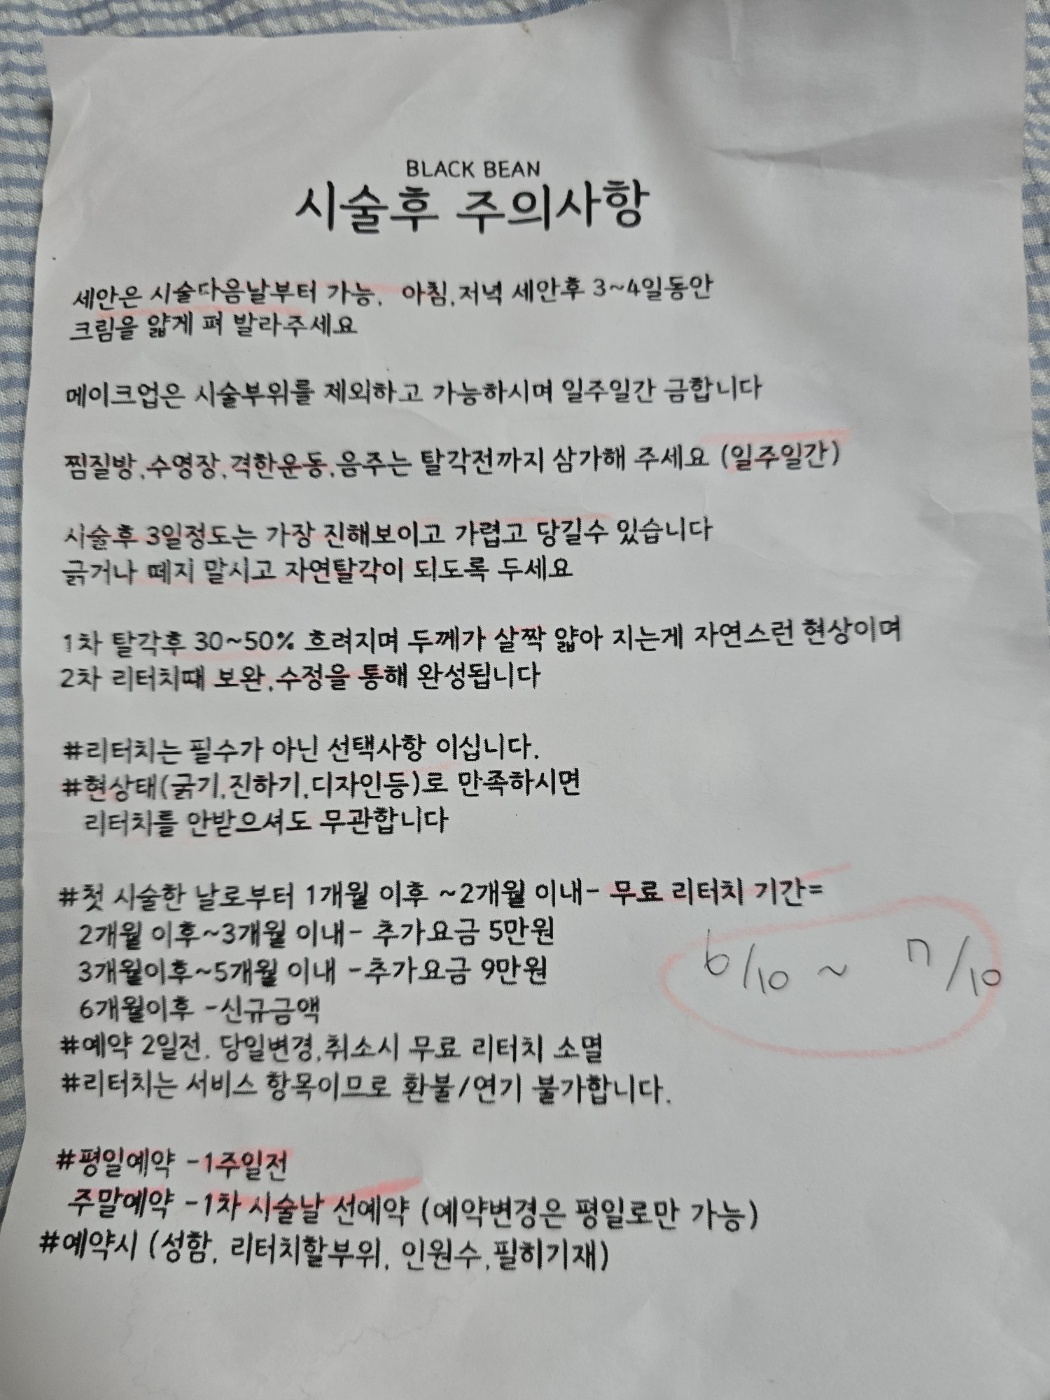 BLACK BEAN
시술후 주의사항
세안은 시술다음날부터 가능, 아침,저녁 세안후 3~4일동안
크림을 얇게 펴 발라주세요
메이크업은 시술부위를 제외하고 가능하시며 일주일간 금합니다
찜질방,수영장,격한운동,음주는 탈각전까지 삼가해 주세요 (일주일간)
시술후 3일정도는 가장 진해보이고 가렵고 당길수 있습니다
긁거나 떼지 말시고 자연탈각이 되도록 두세요
1차 탈각후 30~50% 흐려지며 두께가 살짝 얇아 지는게 자연스런 현상이며
2차 리터치때 보완,수정을 통해 완성됩니다
#리터치는 필수가 아닌 선택사항 이십니다.
#현상태(굵기,진하기,디자인등)로 만족하시면
리터치를 안받으셔도 무관합니다
#첫 시술한 날로부터 1개월 이후 ~2개월 이내- 무료 리터치 기간=
2개월 이후~3개월 이내- 추가요금 5만원
6/10 ~ 7/10
3개월이후~5개월 이내 -추가요금 9만원
6개월이후 -신규금액
#예약 2일전, 당일변경,취소시 무료 리터치 소멸
#리터치는 서비스 항목이므로 환불/연기 불가합니다.
#평일예약 -1주일전
주말예약 -1차 시술날 선예약 (예약변경은 평일로만 가능)
#예약시 (성함, 리터치할부위, 인원수,필히기재)